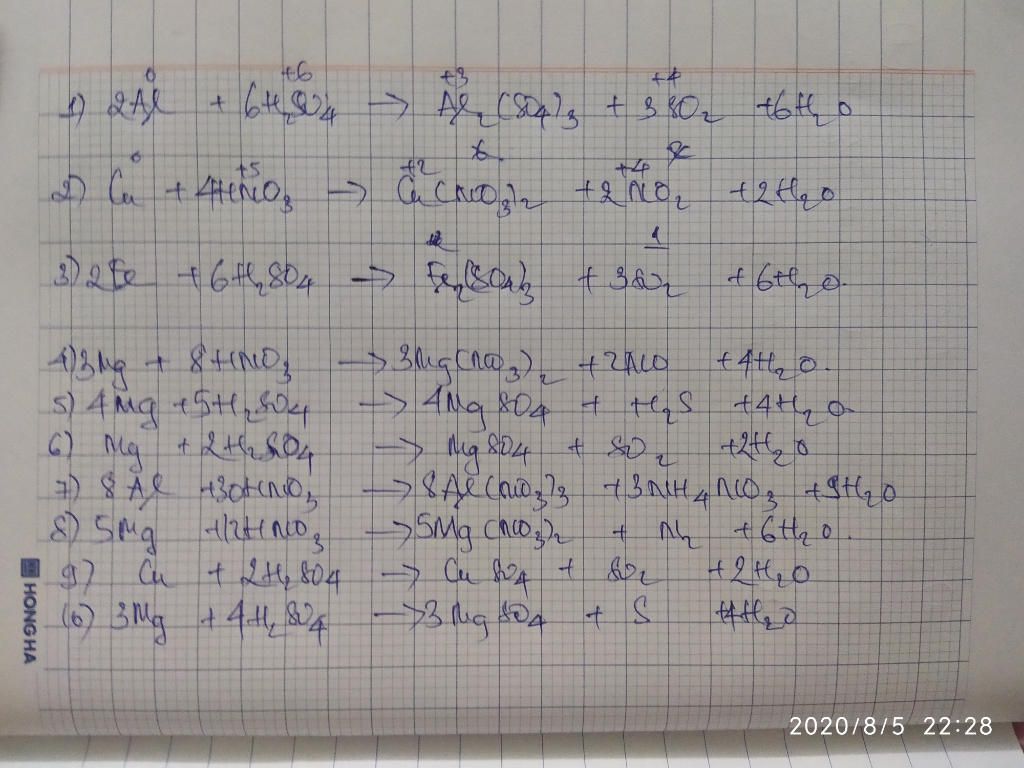 0 +6 +3 +4
1) 2Al + 6H₂SO₄ → Al₂(SO₄)₃ + 3SO₂ + 6H₂O
0 +5 +2 +4
2) Cu + 4HNO₃ → Cu(NO₃)₂ + 2NO₂ + 2H₂O
3) 2Fe + 6H₂SO₄ → Fe₂(SO₄)₃ + 3SO₂ + 6H₂O.
4) 3Mg + 8HNO₃ → 3Mg(NO₃)₂ + 2NO + 4H₂O.
5) 4Mg + 5H₂SO₄ → 4MgSO₄ + H₂S + 4H₂O
6) Mg + 2H₂SO₄ → MgSO₄ + SO₂ + 2H₂O
7) 8Al + 30HNO₃ → 8Al(NO₃)₃ + 3NH₄NO₃ + 9H₂O
8) 5Mg + 12HNO₃ → 5Mg(NO₃)₂ + N₂ + 6H₂O.
9) Cu + 2H₂SO₄ → CuSO₄ + SO₂ + 2H₂O
10) 3Mg + 4H₂SO₄ → 3MgSO₄ + S + 4H₂O
HONG HA
2020/8/5 22:28